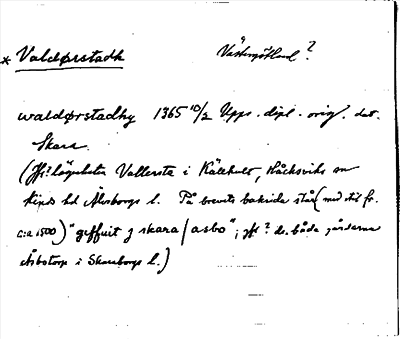 * Valdørstadh Västergötland?
waldørstadhy 1365 10/2 Upps. dipl. orig. dat.
Skara
(Jfr? lägenheten Vallersta i Kälehult, Håcksviks sn
Kinds hd Älvsborgs l. På brevets baksida står (med stil fr.
c:a 1500) "geffuit j skara / asbo"; jfr? de båda gårdarna
Åsbotorp i Skaraborgs l.)